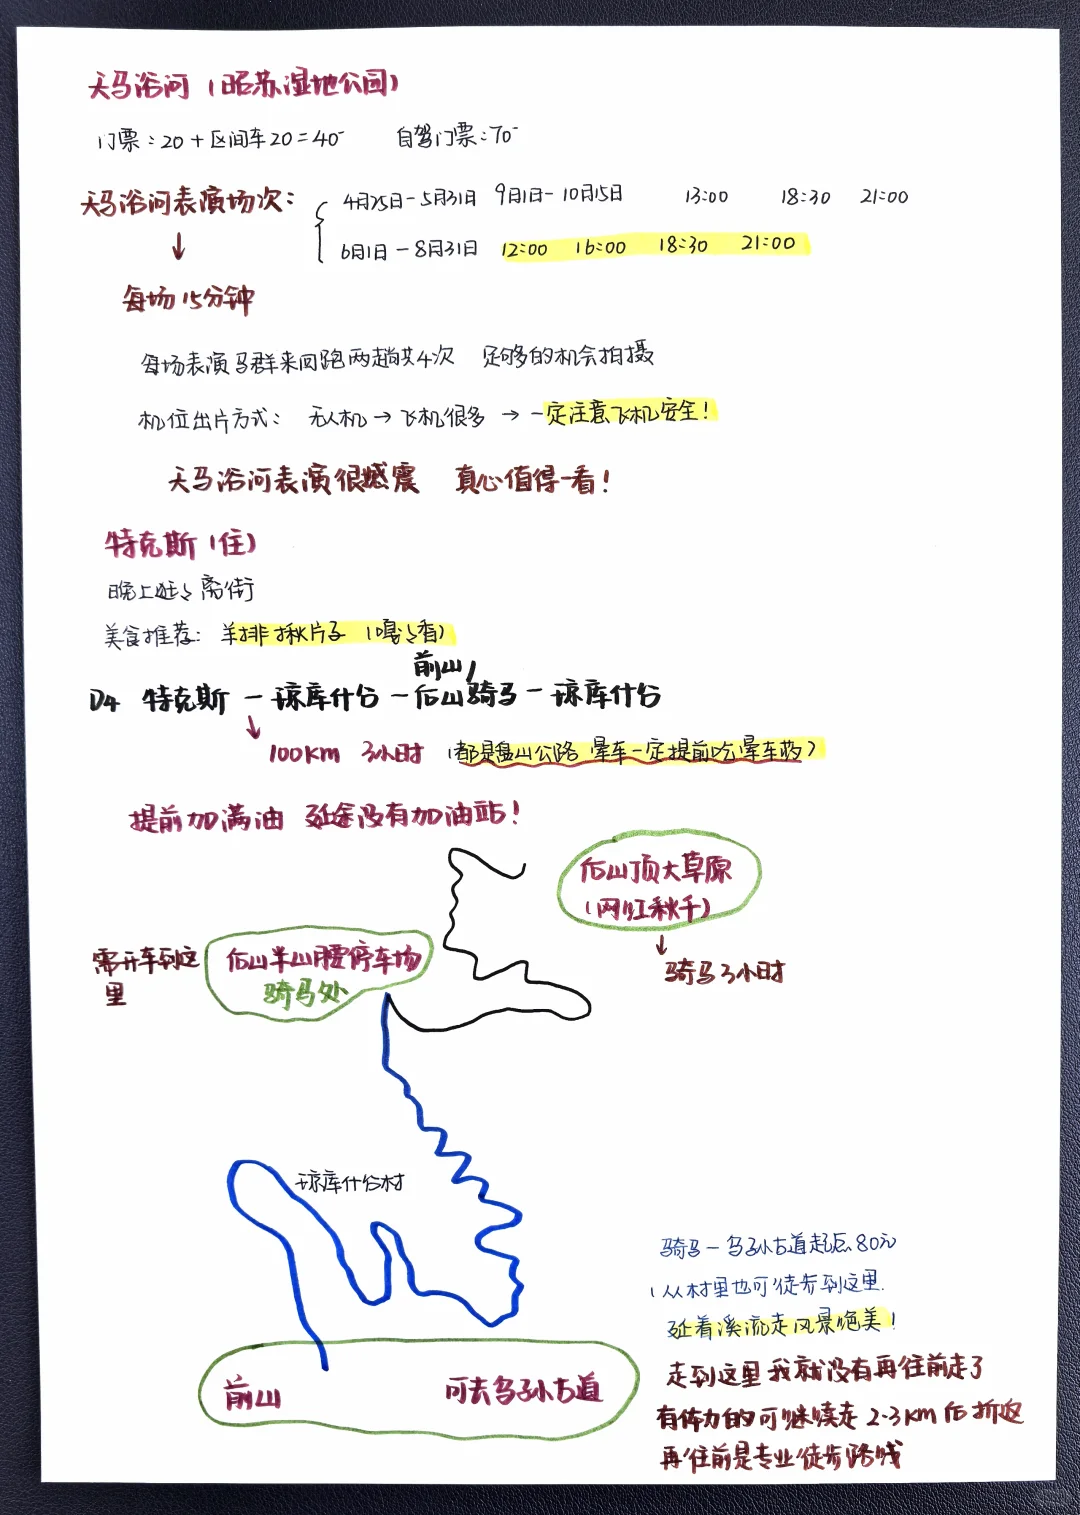 天马浴河（昭苏湿地公园）
门票：20+区间车20=40- 自驾门票：70-
天马浴河表演场次：
4月25日-5月31日 9月1日-10月15日 13:00 18:30 21:00
6月1日-8月31日 12:00 16:00 18:30 21:00
↓
每场15分钟
每场表演马群来回跑两趟共4次 足够的机会拍摄
机位出片方式：无人机→飞机很多→一定注意飞机安全！
天马浴河表演很撼震 真心值得一看！
特克斯（住）
晚上逛逛离街
美食推荐：羊排揪片子（嘎嘎香）
前山/
D4 特克斯-琼库什台-后山骑马-琼库什台
↓
100km 3小时（都是盘山公路 晕车一定提前吃晕车药）
提前加满油 延途没有加油站！
后山顶大草原
（网红秋千）
↓
骑马3小时
需开车到这里
后山半山腰停车场
骑马处
琼库什台村
骑马-乌孙古道起点80元
（从村里也可徒步到这里.
延着溪流走风景绝美！
前山 可去乌孙古道
走到这里我就没有再往前走了
有体力的可继续走2-3km后折返
再往前是专业徒步路线